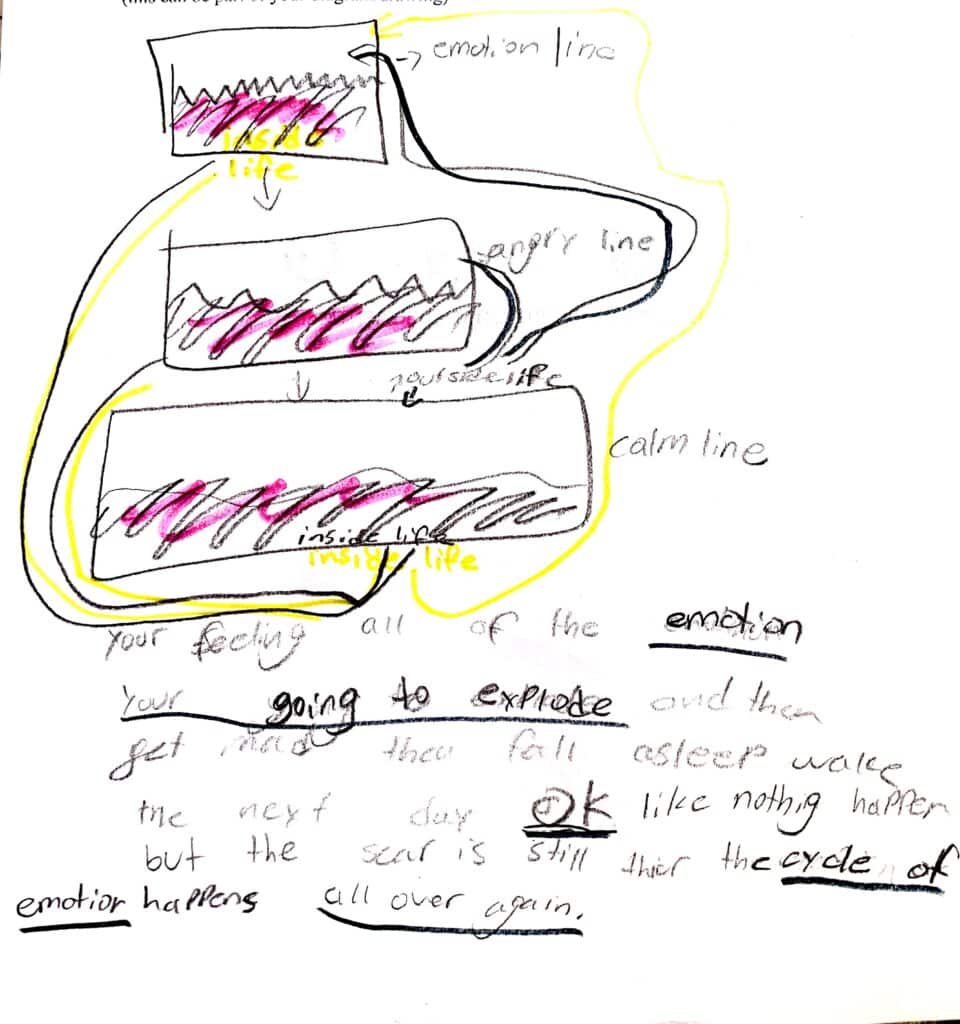 (this can be part of your
drawing)
emotion line
inside
life
angry line
outside life
calm line
inside life
inside life
your feeling all of the emotion
your going to explode and then
get mad then fall asleep wake
the next day OK like nothig happen
but the scar is still thier the cycle of
emotion happens all over again.